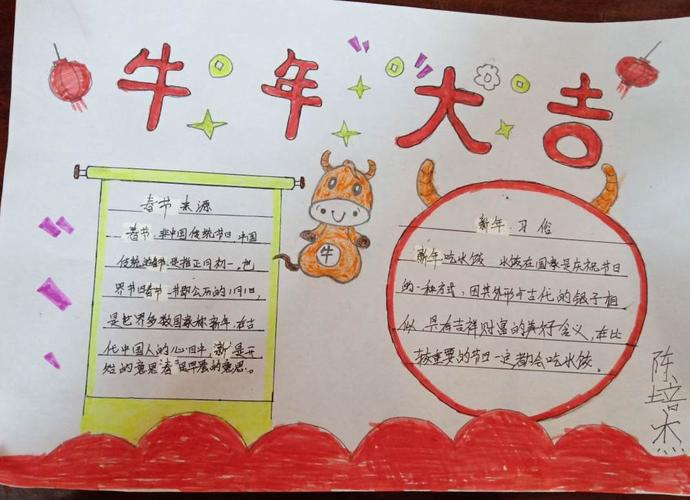 牛年大吉
春节来源
春节,非中国传统节日,中国
传统的春节是指正月初一。把
界节日春节一节即公历的1月1日,
是世界多数国家称新年,在古
代中国人的心目中,新是开
始的意思,春是早晨的意思。
牛
新年习俗
新年吃水饺 水饺在国家是庆祝节日
的一种方式,因其外形与古代的银子相
似,具有吉祥财富的美好含义,在比
较重要的节日一定都会吃水饺。
陈培杰